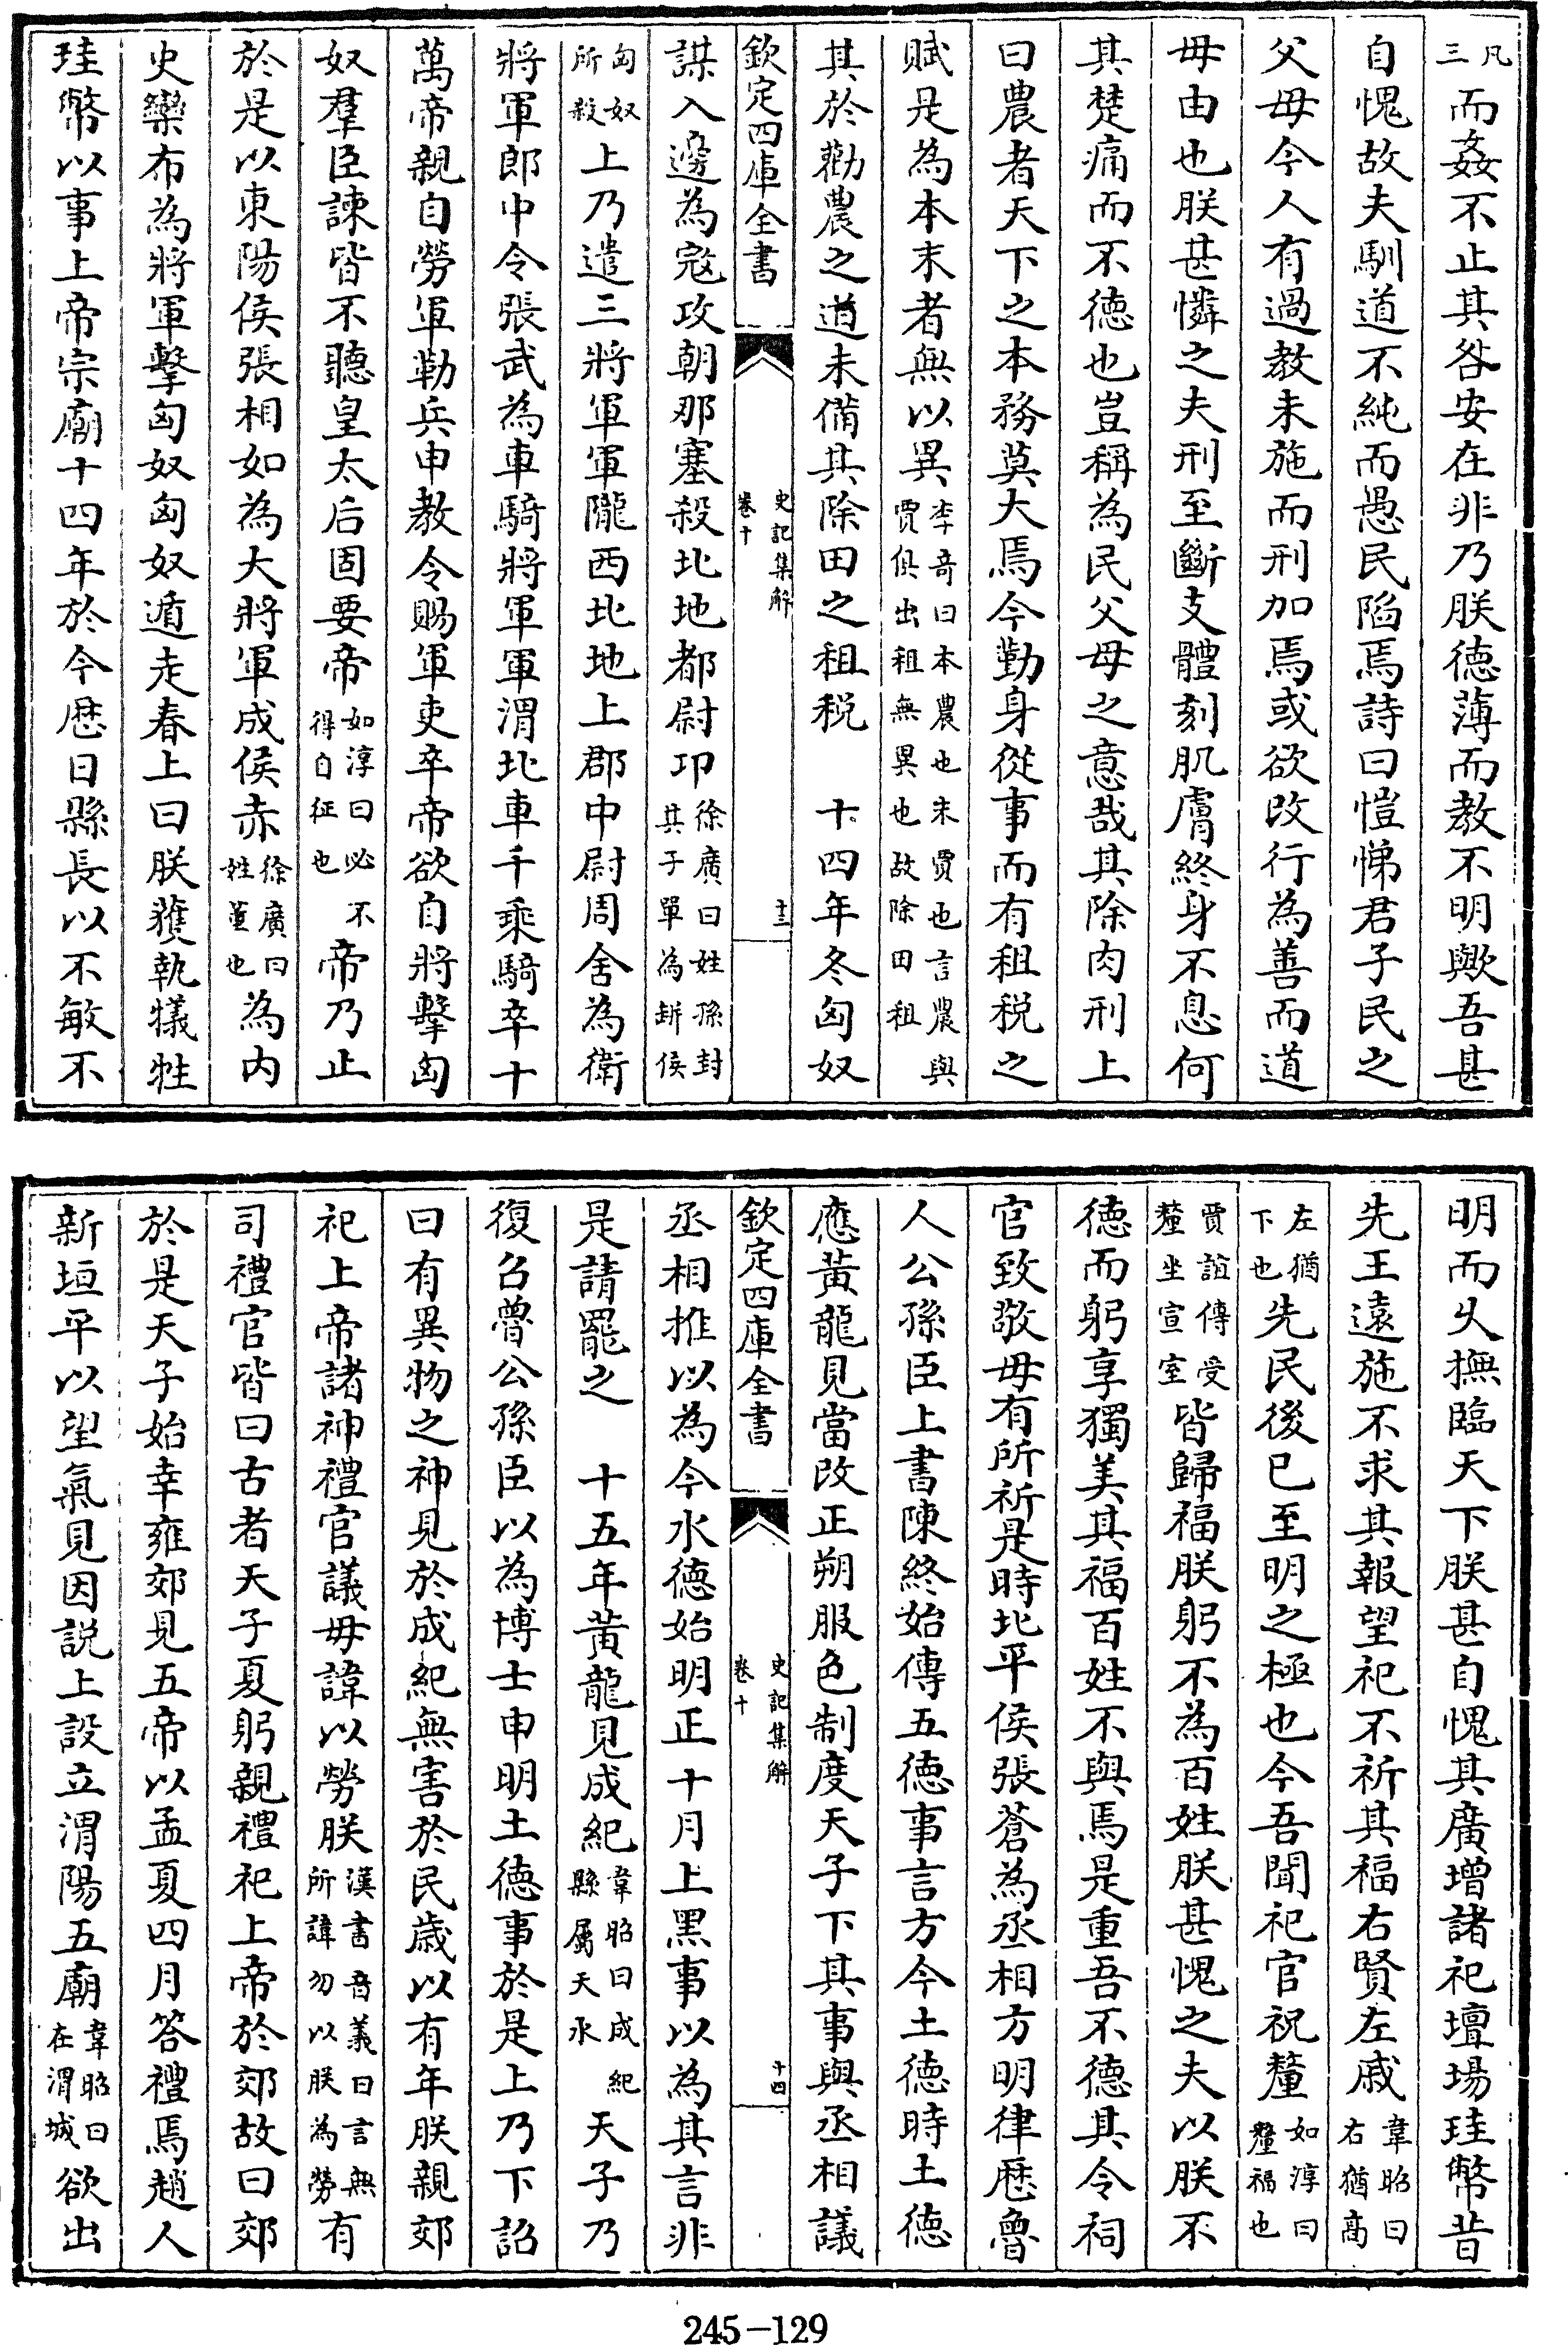 凡三而姦不止其咎安在非乃朕德薄而教不明歟吾甚
自愧故夫馴道不純而愚民陷焉詩曰愷悌君子民之
父母今人有過教未施而刑加焉或欲改行為善而道
毋由也朕甚憐之夫刑至斷支體刻肌膚終身不息何
其楚痛而不德也豈稱為民父母之意哉其除肉刑上
曰農者天下之本務莫大焉今勤身從事而有租税之
賦是為本末者無以異李奇曰本農也末賈也言農與賈俱出租無異也故除田租
其於勸農之道未備其除田之租税　十四年冬匈奴
欽定四庫全書　史記集解卷十　十三
謀入邊為宼攻朝那塞殺北地都尉卭徐廣曰姓孫封其子單為缾侯
匈奴所殺上乃遣三將軍軍隴西北地上郡中尉周舍為衛
將軍郎中令張武為車騎將軍軍渭北車千乘騎卒十
萬帝親自勞軍勒兵申教令賜軍吏卒帝欲自將擊匈
奴羣臣諫皆不聽皇太后固要帝如淳曰必不得自征也帝乃止
於是以東陽侯張相如為大將軍成侯赤徐廣曰姓董也為內
史欒布為將軍擊匈奴匈奴遁走春上曰朕獲執犧牲
珪幣以事上帝宗廟十四年於今歴日縣長以不敏不
明而乆撫臨天下朕甚自愧其廣增諸祀壇場珪幣昔
先王遠施不求其報望祀不祈其福右賢左戚韋昭曰右猶高
左猶下也先民後已至明之極也今吾聞祀官祝釐如淳曰釐福也
賈誼傳受釐坐宣室皆歸福朕躬不為百姓朕甚愧之夫以朕不
德而躬享獨美其福百姓不與焉是重吾不德其令祠
官致敬毋有所祈是時北平侯張蒼為丞相方明律歴魯
人公孫臣上書陳終始傳五德事言方今土德時土德
應黃龍見當改正朔服色制度天子下其事與丞相議
欽定四庫全書　史記集解卷十　十四
丞相推以為今水德始明正十月上黑事以為其言非
是請罷之　十五年黃龍見成紀韋昭曰成紀縣屬天水天子乃
復召魯公孫臣以為博士申明土德事於是上乃下詔
曰有異物之神見於成紀無害於民歳以有年朕親郊
祀上帝諸神禮官議毋諱以勞朕漢書音義曰言無所諱勿以朕為勞有
司禮官皆曰古者天子夏躬親禮祀上帝於郊故曰郊
於是天子始幸雍郊見五帝以孟夏四月答禮焉趙人
新垣平以望氣見因説上設立渭陽五廟韋昭曰在渭城欲出
245-129